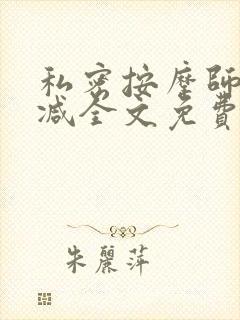 私密按摩師
减全文免費
朱麗萍